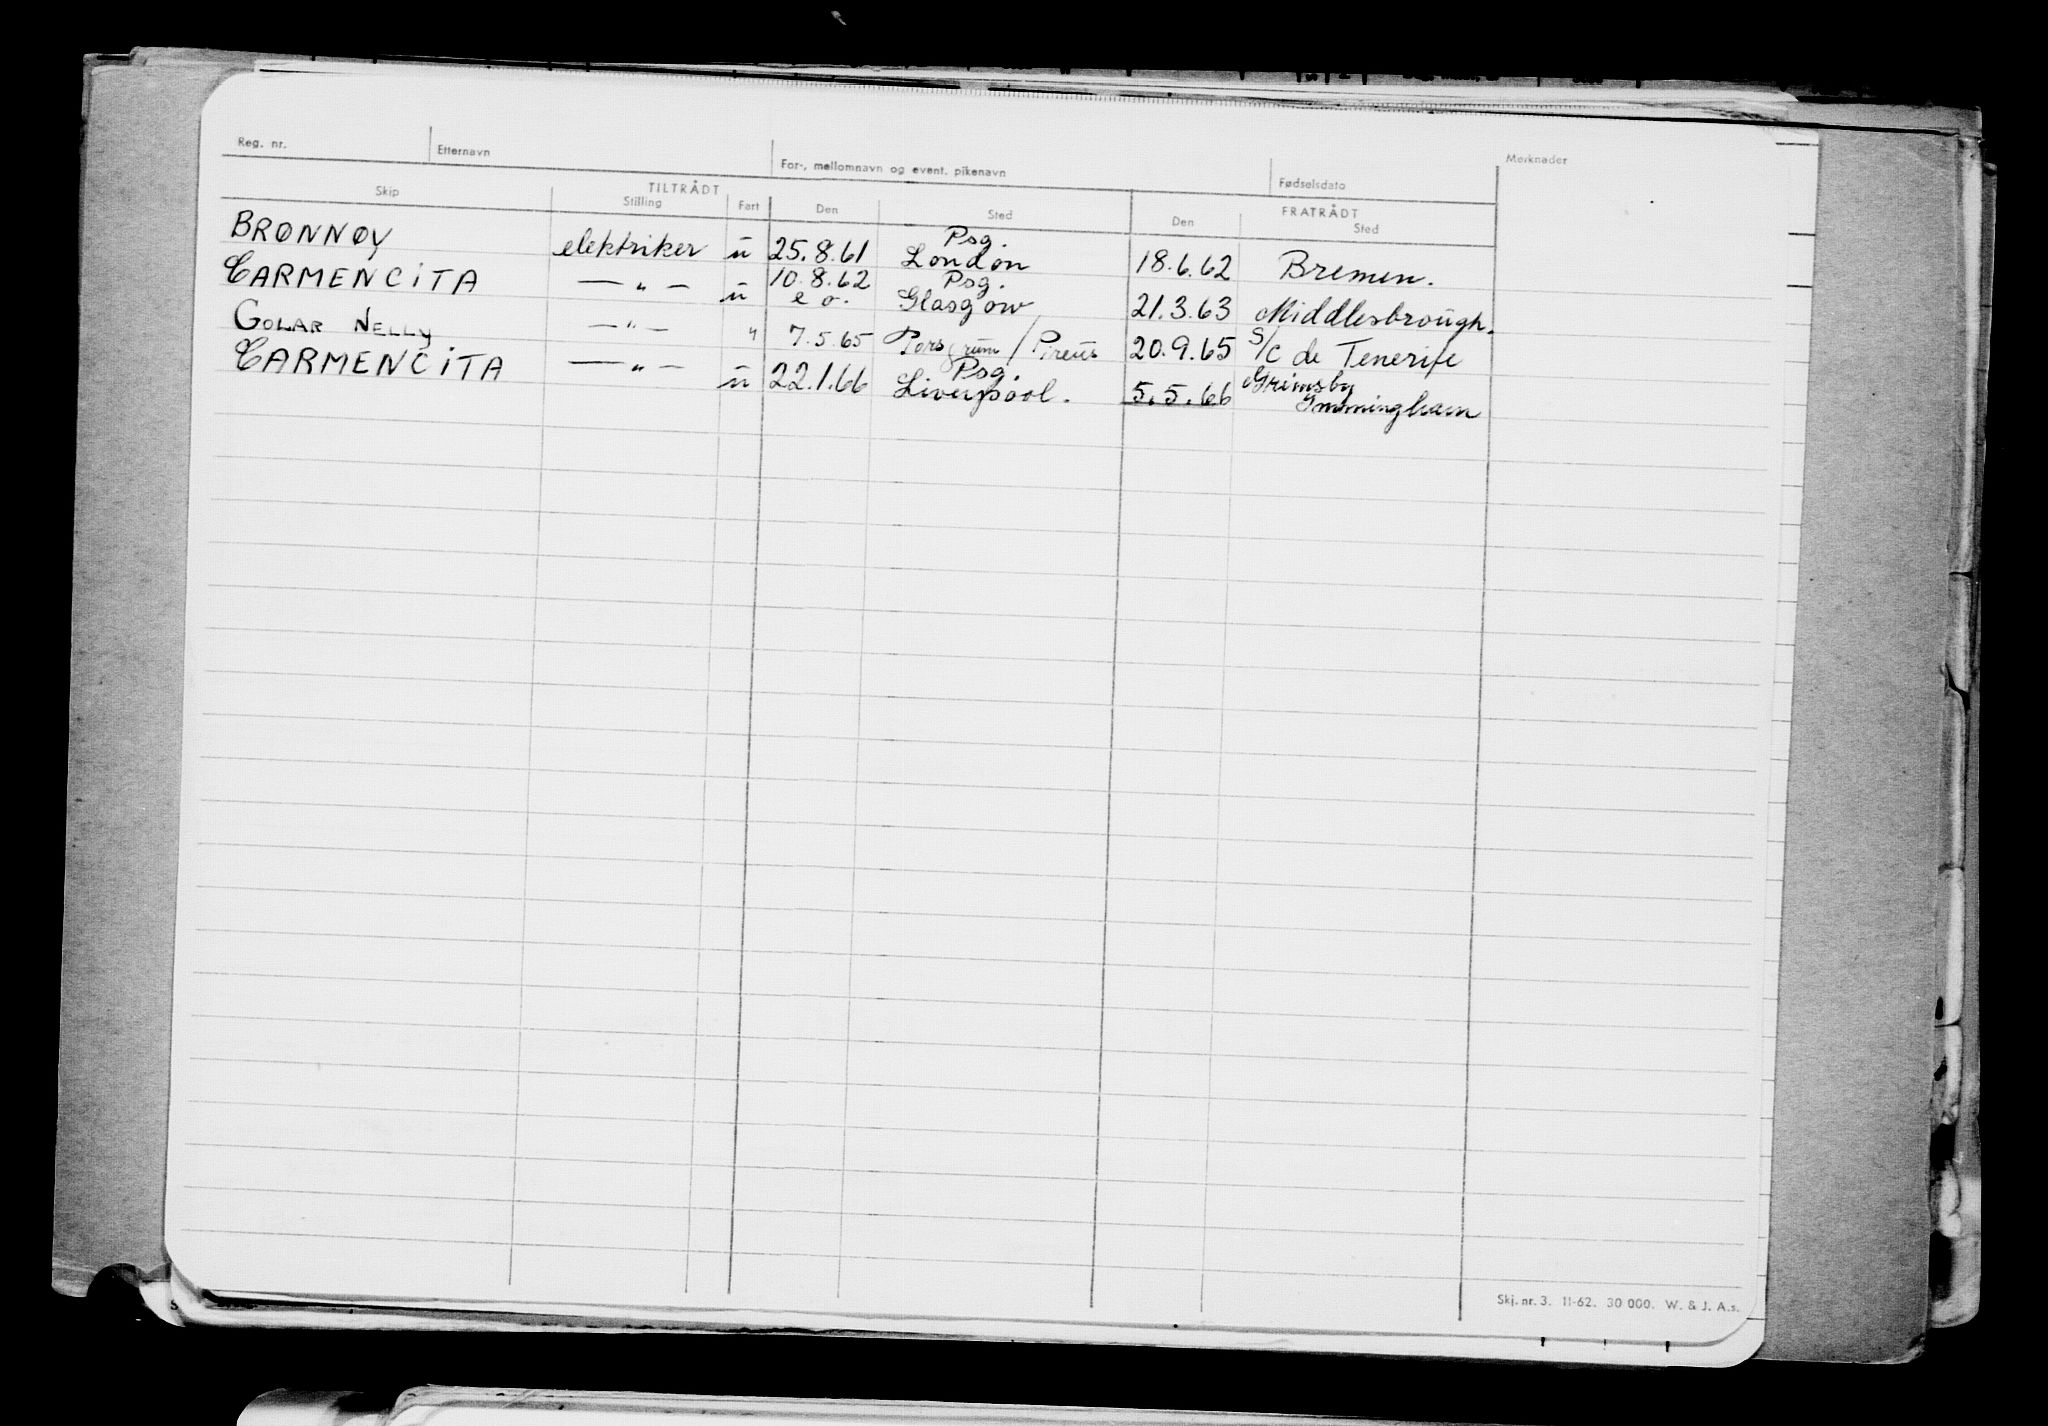 Reg. nr. Etternavn For-, mellomnavn og event. pikenavn Fødselsdato Merknader
TILTRÅDT FRATRÅDT
Skip Stilling Fart Den Sted Den Sted
BRØNNØY elektriker u 25.8.61 Psg. London 18.6.62 Bremen.
CARMENCITA — " — u 10.8.62 e o. Psg. Glasgow 21.3.63 Middlesbrough.
GOLAR NELLY — " — " 7.5.65 Porsgrunn / Pireus 20.9.65 S/C de Tenerife
CARMENCITA — " — u 22.1.66 Psg. Liverpool. 5.5.66 Grimsby
Immingham
Skj. nr. 3. 11-62. 30 000. W. & J. A.s.